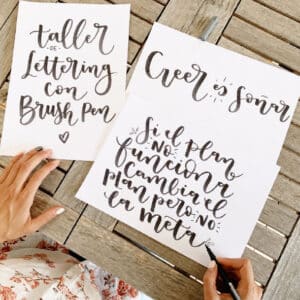 taller
DE
Lettering
con
Brush Pen
Creer es Soñar
Si el plan
NO
funciona
Cambia el
plan pero NO
la meta